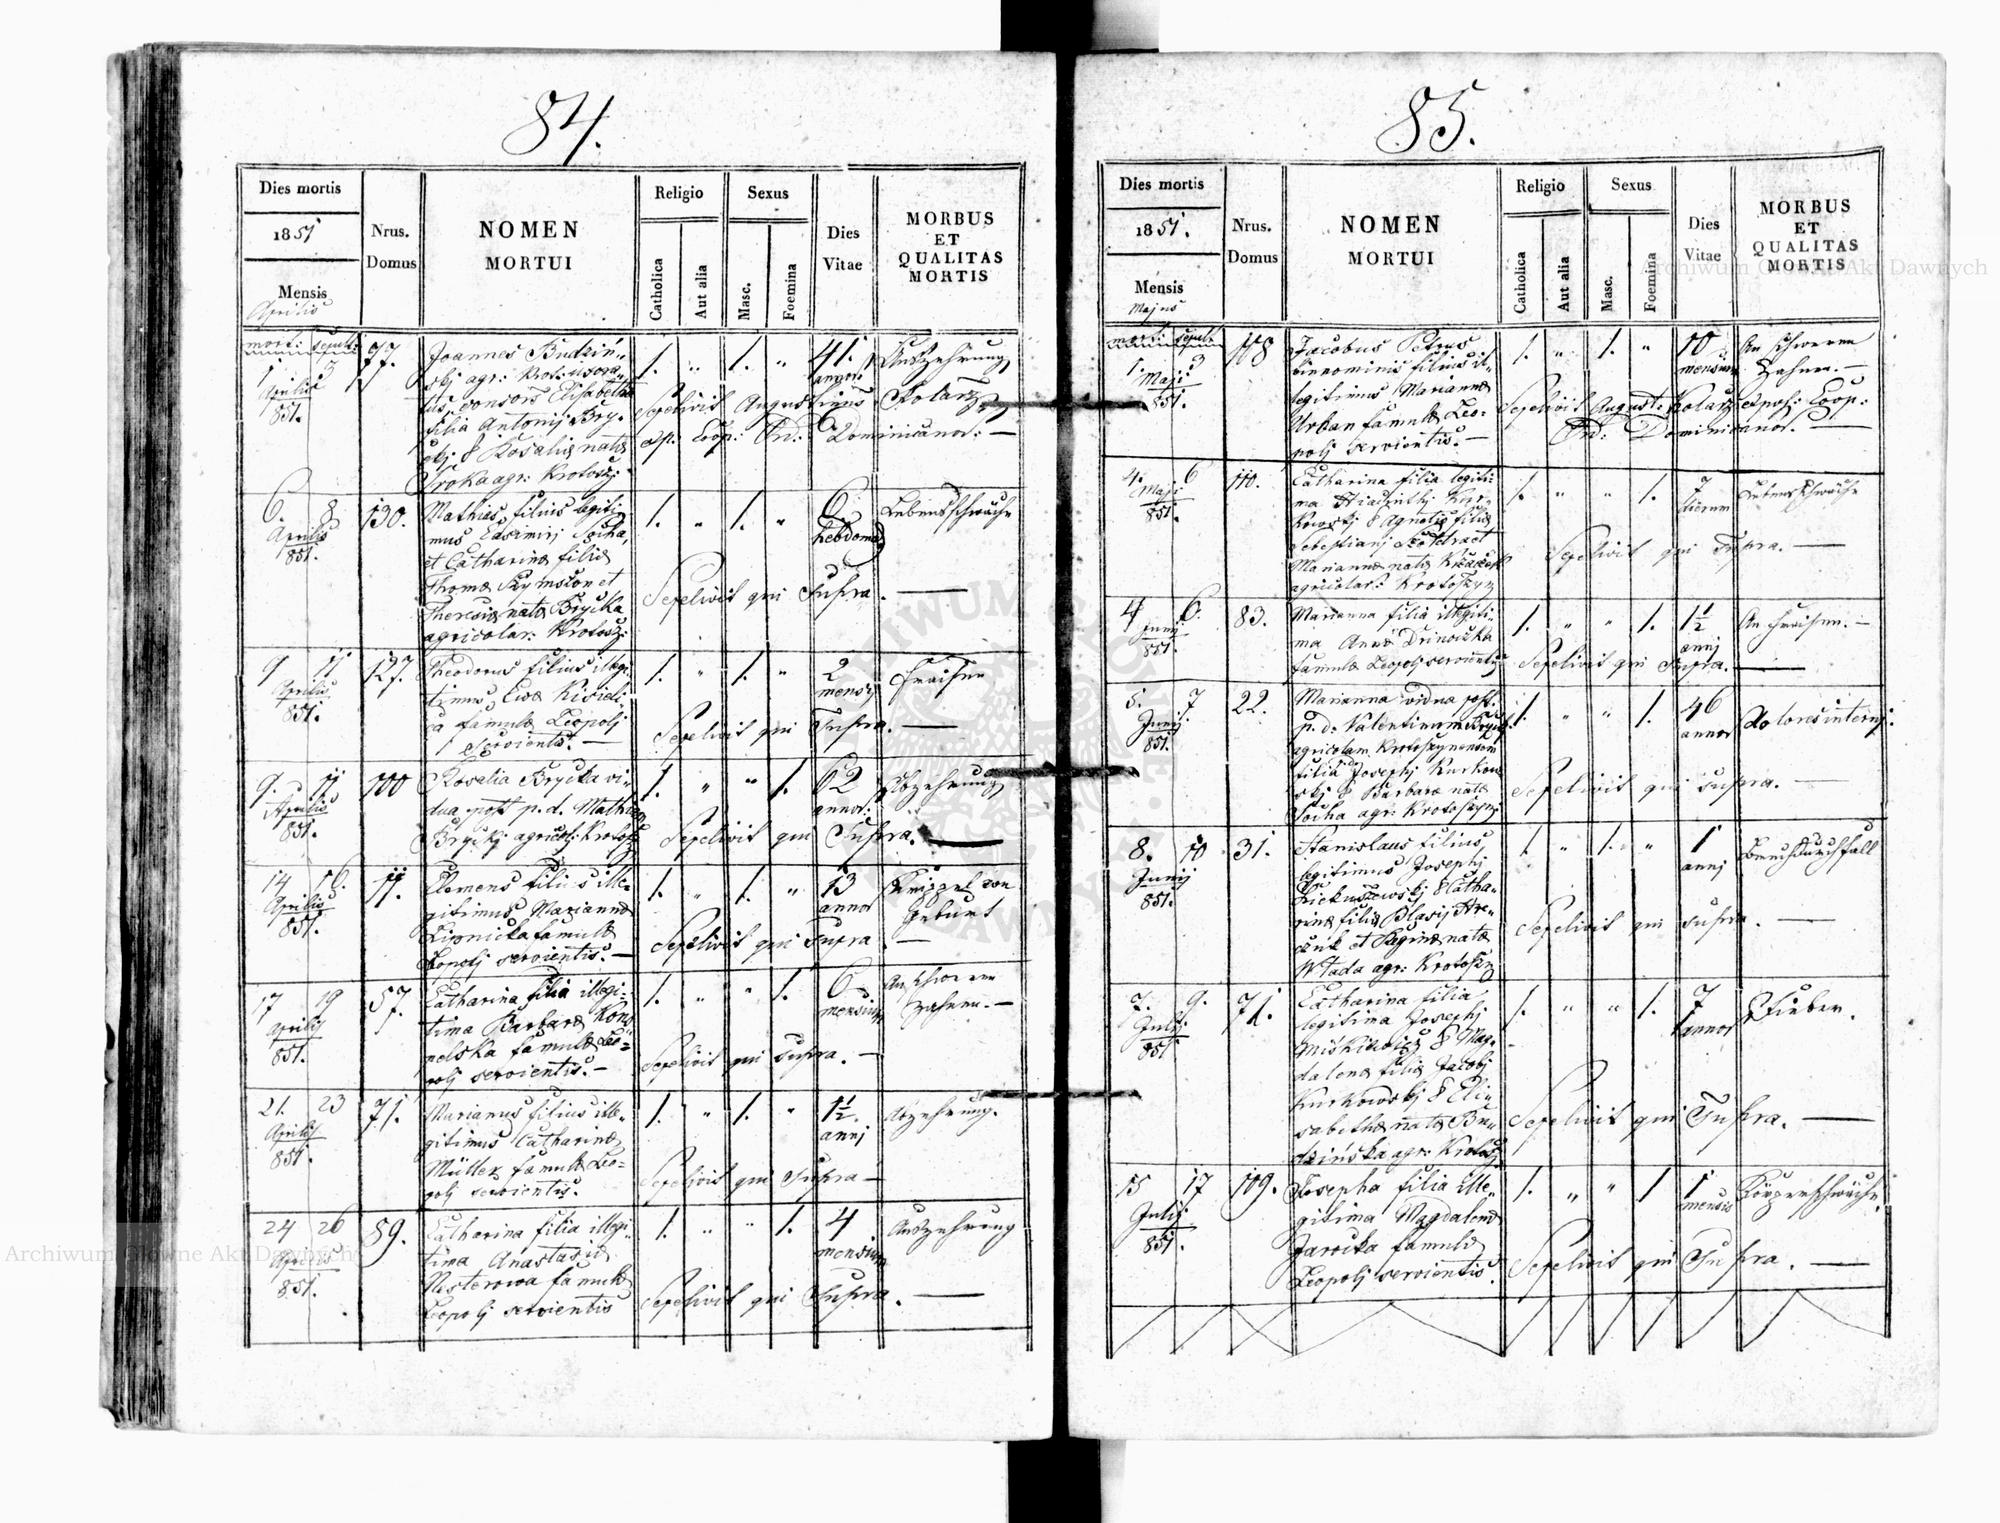 84.
Dies mortis
1851
Mensis
Aprilis
Nrus.
Domus
NOMEN
MORTUI
Religio
Catholica
Aut alia
Sexus
Masc.
Foemina
Dies
Vitae
MORBUS
ET
QUALITAS
MORTIS
mort: sepult:
1 3
Aprilis
851.
77.
Joannes Budziń„
skj agr: Krot: uxora„
tus, consors Elisabetha
filia Antonij Bry„
ckj & Rosaliæ natæ
Sroka agr: Krotosz:
1. „ 1. „
41.
annor:
Auszehrung
Sepelivit Augustinus Kolarz
Exp: Coop: Ord: Dominicanor: —
6. 8
Aprilis
851.
130.
Mathias filius legiti„
mus Casimirj Socha,
et Catharinæ filiæ
Thomæ Szymston et
Theresiæ natæ Brycka
agricolar: Krotosz:
1. „ 1. „
6
hebdomad
Lebensschwäche
Sepelivit qui Supra. —
9 11
Aprilis
851.
127.
Theodorus filius illegi„
timus, Evæ Kisieli„
ca famulæ Leopolj
servientis. —
1. „ 1. „
2
mensij
Fraisen
Sepelivit qui Supra. —
9. 11
Aprilis
851.
100
Rosalia Brycka vi„
dua post p. d. Mathiam
Bryckj agricol: Krotosz
1. „ „ 1.
62
annor:
Abzehrung
Sepelivit qui Supra. —
14 16.
Aprilis
851.
11.
Clemens filius ille„
gitimus Mariannæ
Lipnicka famulæ
Leopolj servientis. —
1. „ 1. „
13
annor
Krippel von
Geburt
Sepelivit qui supra. —
17 19
Aprilis
851.
57.
Catharina filia illegi„
tima Barbaræ Kono
polska famulæ Leo=
polj servientis. —
1. „ „ 1.
6
mensium
An schweren
Zahnen. —
Sepelivit qui supra. —
21. 23
Aprilis
851.
71.
Marianus filius ille„
gitimus Catharinæ
Müller famulæ Leo=
polj servientis.
1. „ 1. „
1½
annj
Abzehrung.
Sepelivit qui Supra —
24 26
Aprilis
851.
89.
Catharina filia illegi„
tima Anastasiæ
Nesterowa famulæ
Leopolj servientis
1. „ „ 1.
4
mensium
Auszehrung
Sepelivit qui Supra. —
85.
Dies mortis
1851.
Mensis
Majus
Nrus.
Domus
NOMEN
MORTUI
Religio
Catholica
Aut alia
Sexus
Masc.
Foemina
Dies
Vitae
MORBUS
ET
QUALITAS
MORTIS
mort: sepult:
1. 3
Maji
851.
118
Jacobus Petrus
binominis filius il„
legitimus Mariannæ
Urban famulæ Leo„
polj servientis. —
1. „ 1. „
10
mensium
An schweren
Zahnen. —
Sepelivit August: Kolarz expos: Coop:
Ord: Dominicanor. —
4. 6
Maji
851.
110.
Catharina filia legiti„
ma Hiacinthj Kur„
kowskj & Agnetis filiæ
Sebastianj et
Mariannæ natæ
agricolar: Krotoszyn
1. „ „ 1.
7
dierum
Lebensschwäche
Sepelivit qui Supra. —
4 6.
Junij
851.
83.
Marianna filia illegiti„
ma Annæ Drinoska
famulæ Leopolj servientis
1. „ „ 1.
1½
annj
An Fraisen. —
Sepelivit qui Supra. —
5. 7
Junij
851.
22.
Marianna vidua post
p. d. Valentinum Bryck
agricolam Krotoszynensem
filia Josephj Kurkow
skj & Barbaræ natæ
Socha agr: Krotoszynj
1. „ „ 1.
46
annor
Dolores internj.
Sepelivit qui supra. —
8. 10
Junij
851.
31.
Stanislaus filius
legitimus Josephj
& Catha„
rinæ filiæ Blasij
et Reginæ natæ
Włada agr: Krotoszyn
1. „ 1. „
1
annj
Brechdurchfall
Sepelivit qui supra. —
7. 9.
Julij
851
71.
Catharina filia
legitima Josephj
Miśkiewicz & Mag„
dalenæ filiæ Jacobj
Kurkowskj & Eli„
sabethæ natæ Bu„
dzińska agr: Krotosz:
1. „ „ 1.
7
annor
Fieber.
Sepelivit qui Supra. —
15 17
Julij
851.
109.
Josepha filia ille„
gitima Magdalenæ
Jarocka famulæ
Leopolj servientis.
1. „ „ 1
1
mensis
Körperschwäche.
Sepelivit qui Supra. —
Archiwum Główne Akt Dawnych
Archiwum Główne Akt Dawnych